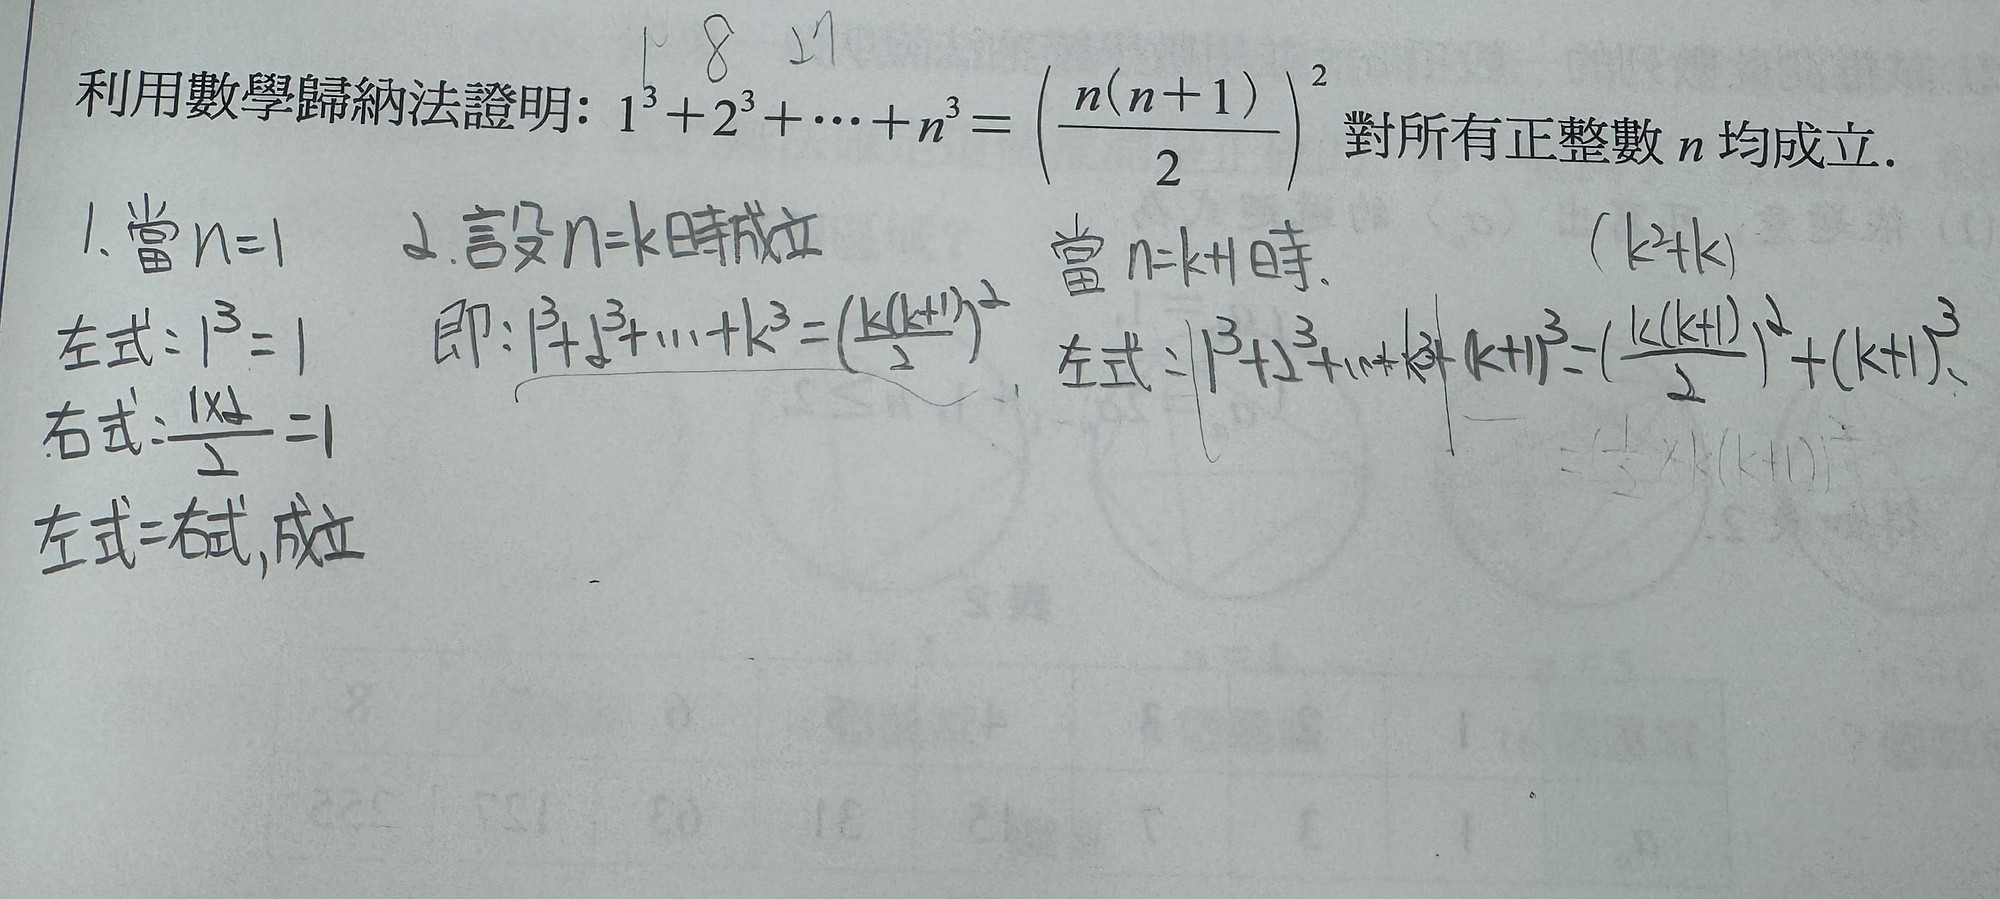 1 8 27
利用數學歸納法證明: 1³+2³+⋯+n³=(n(n+1)/2)² 對所有正整數 n 均成立.
1. 當n=1
左式:1³=1
右式:1×2/2=1
左式=右式,成立
2.設n=k時成立
即:1³+2³+...+k³=(k(k+1)/2)²
當n=k+1時.
(k²+k)
左式:1³+2³+...+k³+(k+1)³=(k(k+1)/2)²+(k+1)³